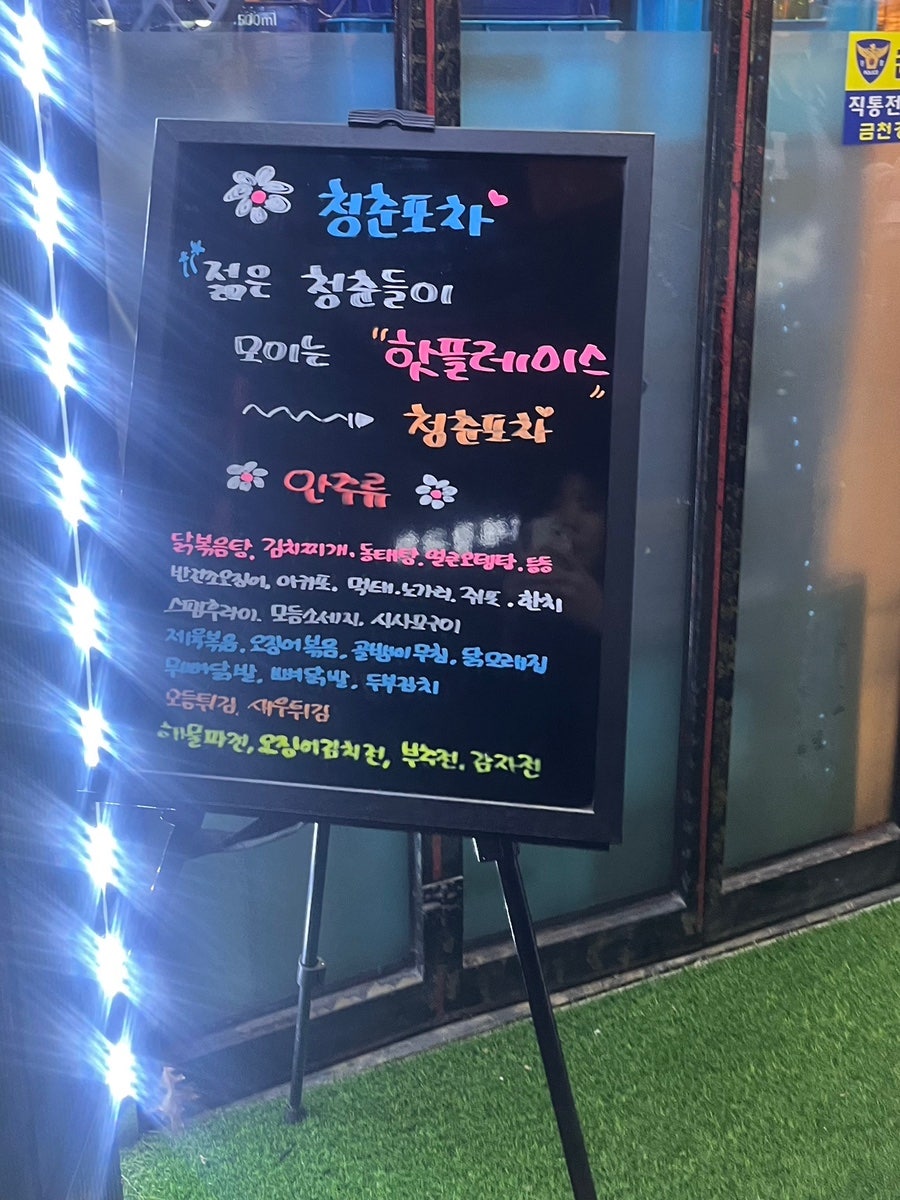 .500ml
직통전
금천경
청춘포차
젊은 청춘들이
모이는 "핫플레이스"
청춘포차
안주류
닭볶음탕. 김치찌개. 동태탕. 얼큰오뎅탕. 등등
반건조오징어, 아귀포, 먹태. 노가리. 쥐포. 한치
스팸후라이. 모듬소세지, 시사모구이
제육볶음. 오징어볶음, 골뱅이무침, 닭모래집
무뼈닭발, 뼈닭발, 두부김치
모듬튀김, 새우튀김
해물파전, 오징어김치전, 부추전, 감자전